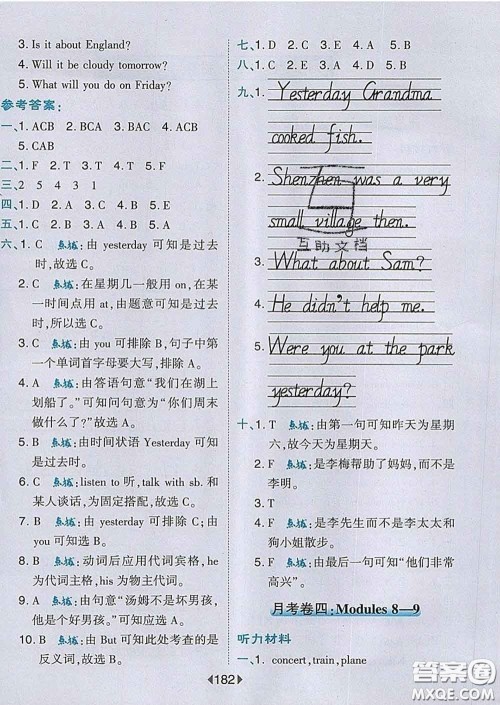 3. Is it about England?
4. Will it be cloudy tomorrow?
5. What will you do on Friday?
参考答案:
一、1. ACB 2. BCA 3. BAC 4. ACB 5. ACB
二、1. F 2. T 3. F 4. T 5. F
三、2 5 4 3 1
四、1. D 2. E 3. B 4. C 5. A
五、1. C 2. B 3. A 4. C 5. B
六、1. C 点拨:由 yesterday 可知是过去
时,故选 C。
2. C 点拨:在星期几一般用 on,在
具体时间点用 at,由题意可知是过去
时,所以选 C。
3. C 点拨:由 put 可排除 B,句子中第
一个单词首字母要大写,排除 A。
4. A 点拨:由答语句意“我们在湖上
划船了。”可知问句意为“你们周末
做什么了?”故选 A。
5. B 点拨:由时间状语 Yesterday 可
知是过去时,故选 B。
6. C 点拨:listen to 听,talk with sb. 和
某人谈话,为固定搭配,故选 C。
7. B 点拨:由 yesterday 可排除 C;由
you 可排除 A;故选 B。
8. B 点拨:动词后应用代词宾格,he
为代词主格,his 为物主代词。
9. A 点拨:由句意“汤姆不是坏男孩,
他是个好男孩。”可知应选 A。
10. B 点拨:由 But 可知此处考查的是
反义词,故选 B。
七、1. D 2. C 3. E 4. A 5. B
八、1. C 2. E 3. A 4. D 5. B
九、1. Yesterday Grandma
cooked fish.
2. Shenzhen was a very
small village then.
互助文档
3. What about Sam?
4. He didn't help me.
5. Were you at the park
yesterday?
十、1. T 点拨:由第一句可知昨天为星期
六,故今天为星期天。
2. F 点拨:是李梅帮助了妈妈,而不是
李明。
3. T
4. F 点拨:是李先生而不是李太太和
狗小姐散步。
5. F 点拨:由最后一句可知“他们非常
高兴”。
月考卷四:Modules 8—9
听力材料
一、1. concert, train, plane
182
答案圈
MXQE.COM